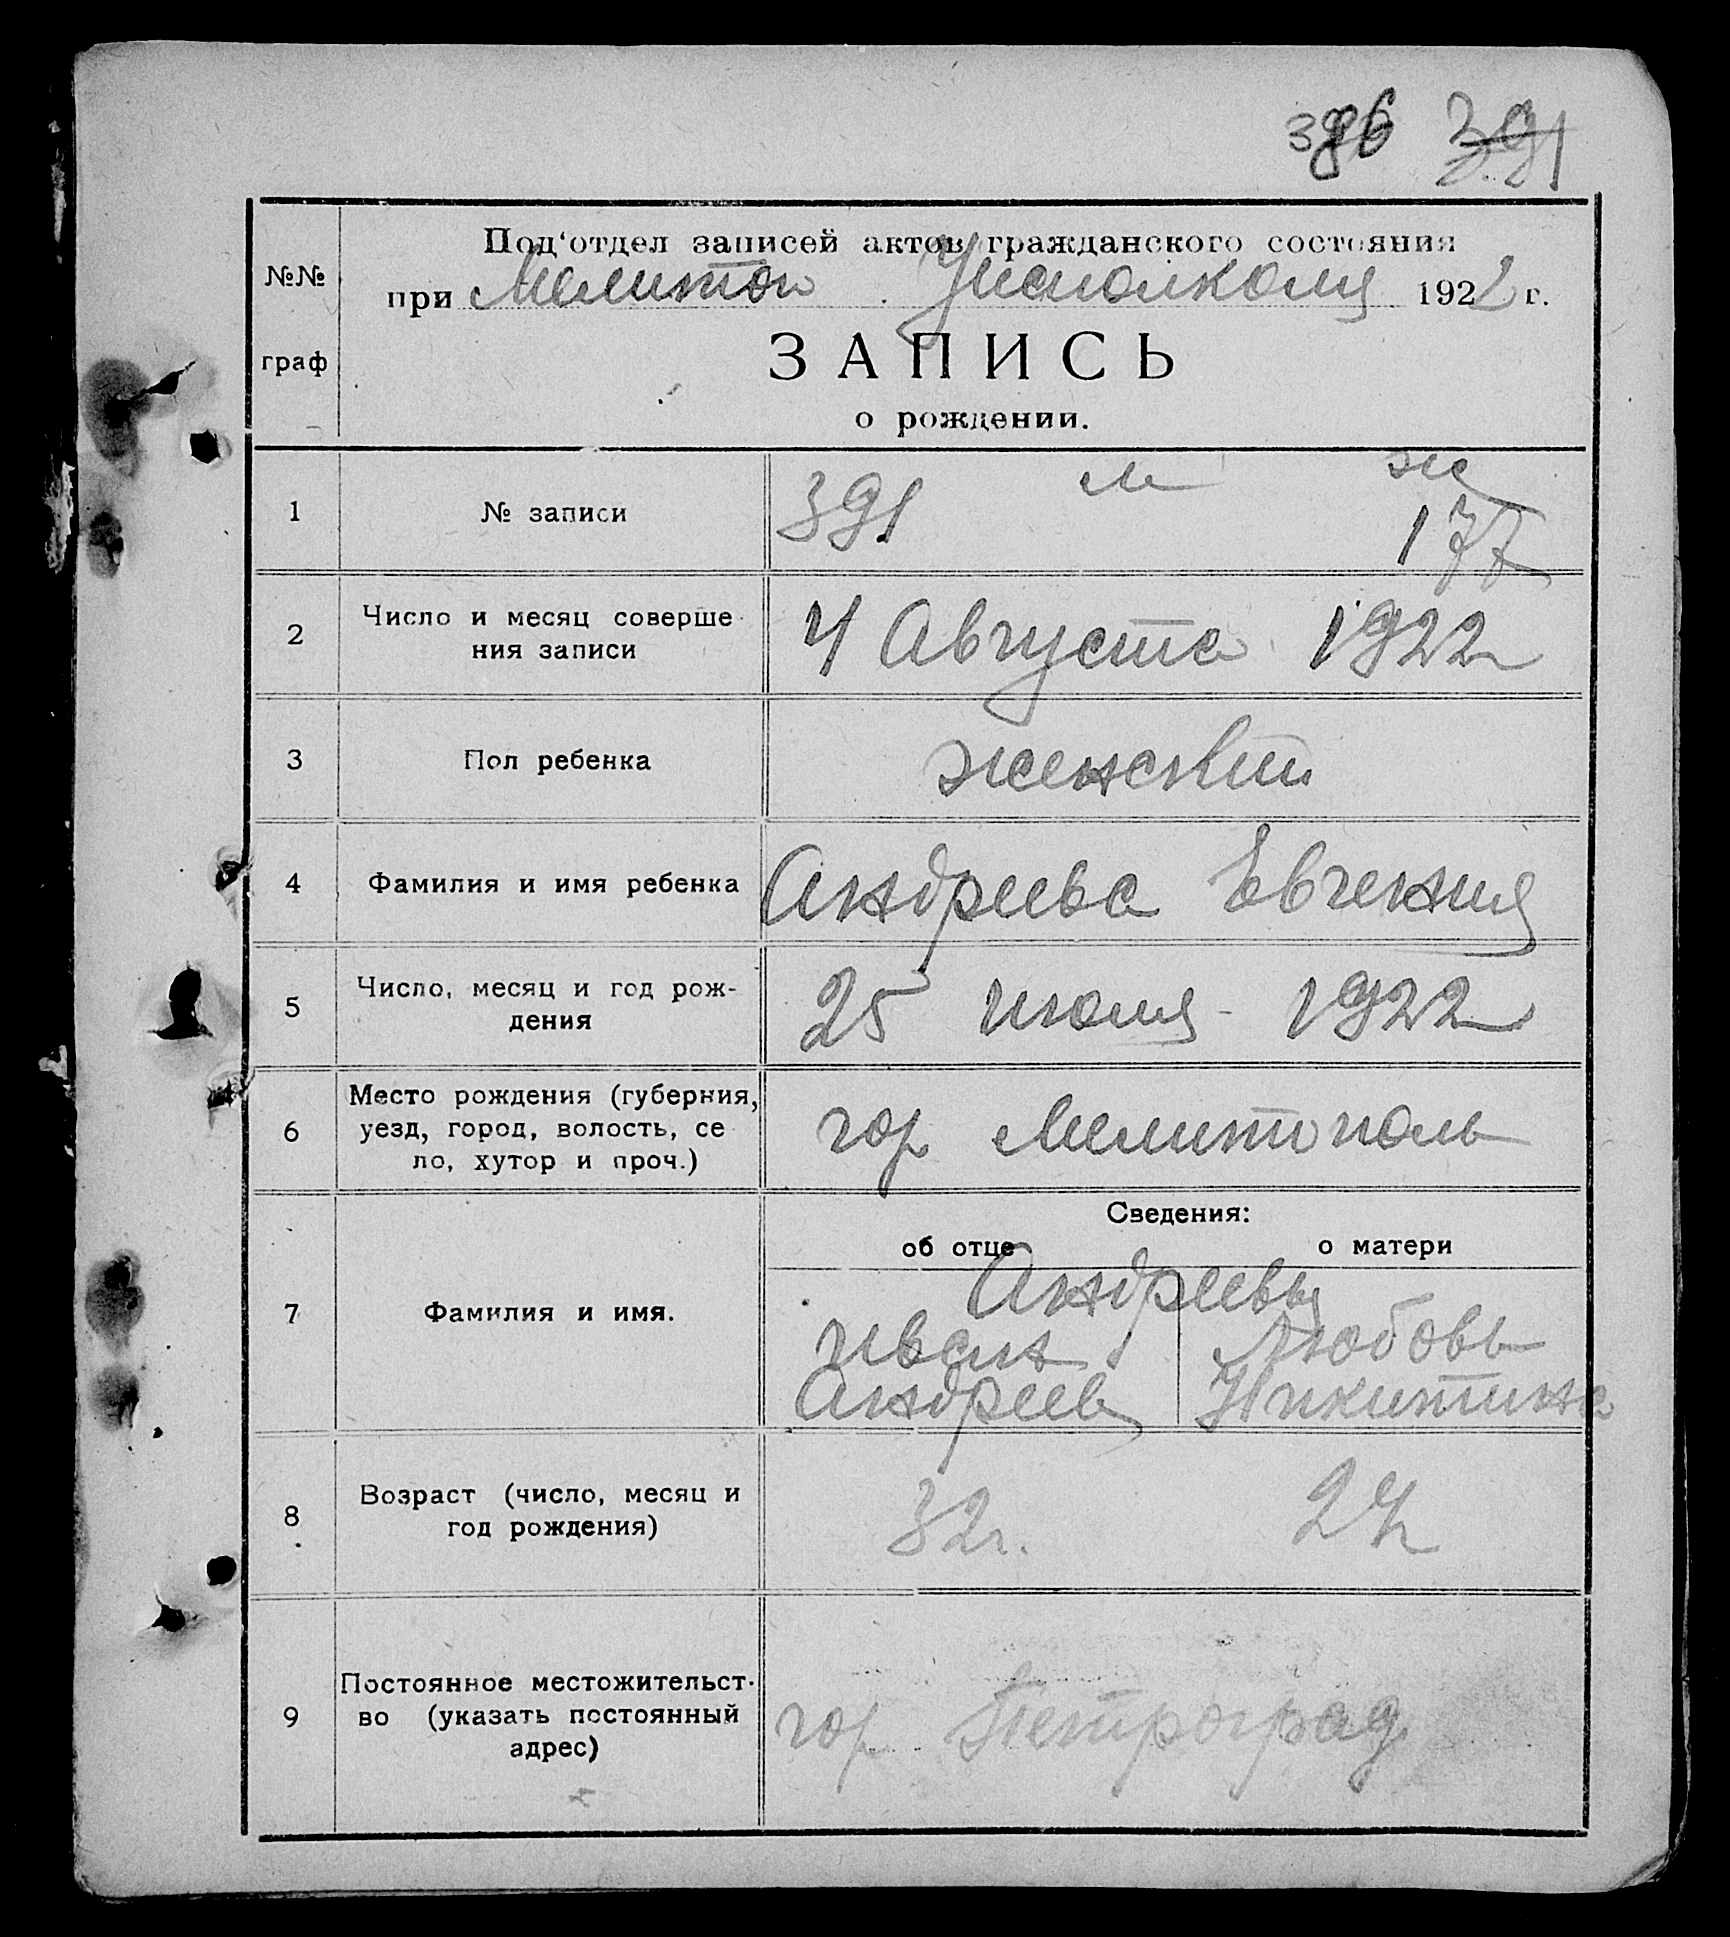 386 391
Под‘отдел записей актов гражданского состояния
при Мелитоп Уисполкома 1922 г.
№№
граф
ЗАПИСЬ
о рождении.
м ж
1 № записи 391 177
2 Число и месяц соверше
ния записи
4 Августа 1922
3 Пол ребенка женский
4 Фамилия и имя ребенка Андреева Евгения
5 Число, месяц и год рож-
дения
25 июля 1922
6 Место рождения (губерния,
уезд, город, волость, се
ло, хутор и проч.)
гор Мелитополь
Сведения:
об отце о матери
7 Фамилия и имя.
Андреевы
Иван Любовь
Андреев Никитина
8 Возраст (число, месяц и
год рождения)
32 г. 24
9 Постоянное местожительст-
во (указать постоянный
адрес)
гор Петроград